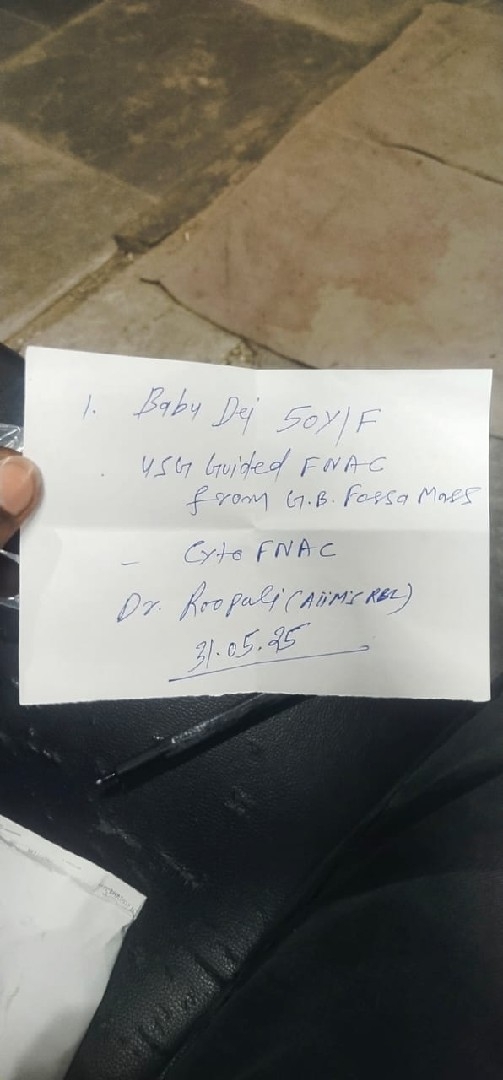 1. Baby Dej 50Y/F
USG Guided FNAC
from G.B. Fossa Mass
- Cyto FNAC
Dr. Roopali (AIIMS RBL)
31.05.25